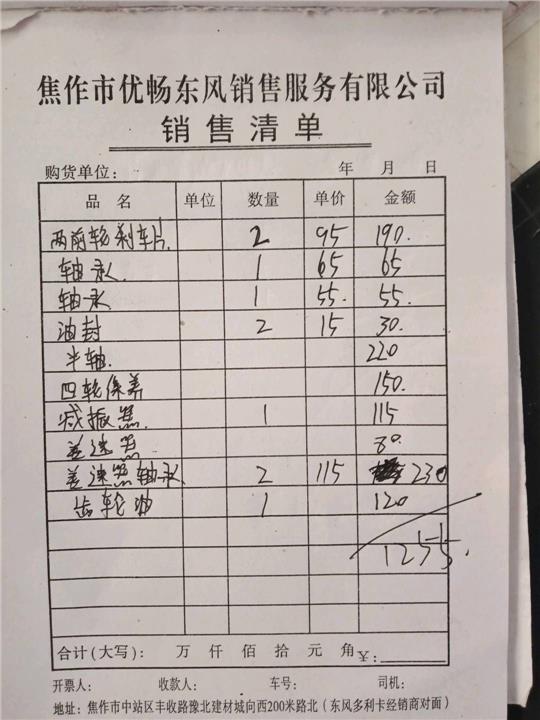 焦作市优畅东风销售服务有限公司
销售清单
购货单位： 年 月 日
品名 单位 数量 单价 金额
两前轮刹车片 2 95 190.
轴承 1 65 65
轴承 1 55. 55.
油封 2 15 30.
半轴 220
四轮保养 150.
减振器 1 115
差速器 80.
差速器轴承 2 115 230
齿轮油 1 120
1255.
合计（大写）： 万 仟 佰 拾 元 角 ¥：
开票人： 收款人： 车号： 司机：
地址：焦作市中站区丰收路豫北建材城向西200米路北（东风多利卡经销商对面）